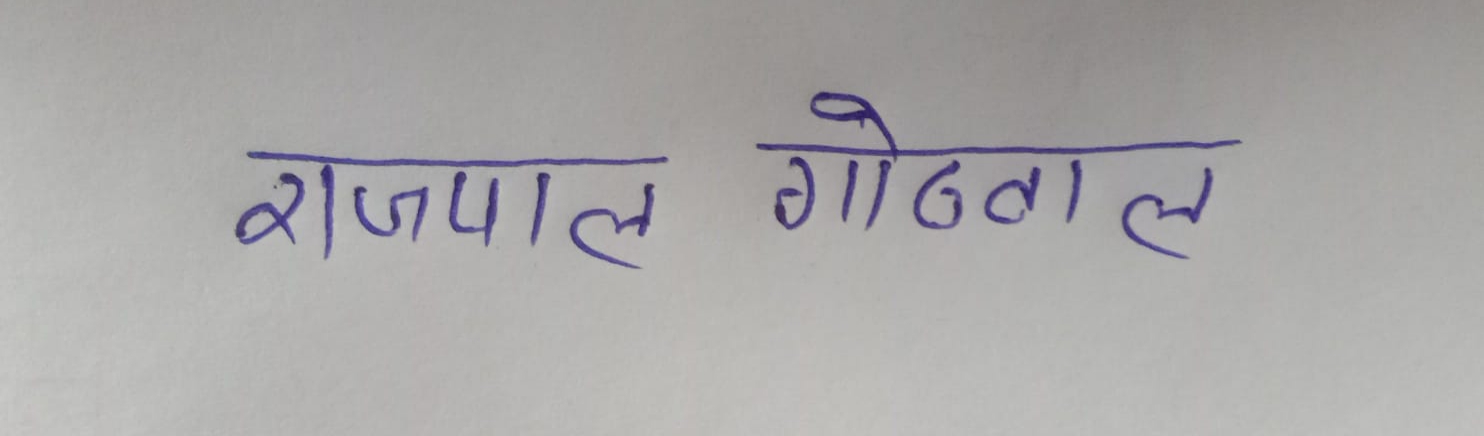 राजपाल गोठवाल